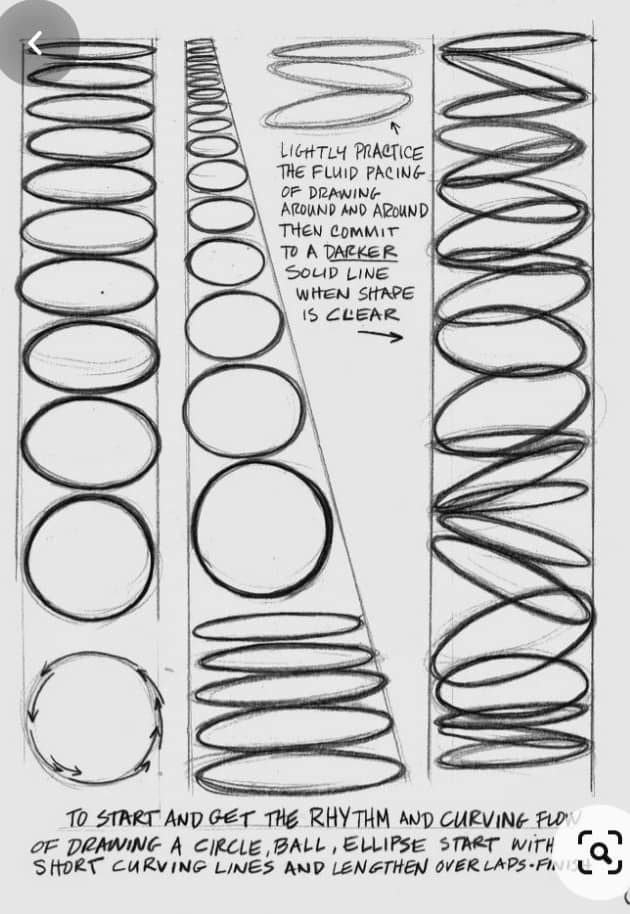 LIGHTLY PRACTICE
THE FLUID PACING
OF DRAWING
AROUND AND AROUND
THEN COMMIT
TO A DARKER
SOLID LINE
WHEN SHAPE
IS CLEAR
TO START AND GET THE RHYTHM AND CURVING FLOW
OF DRAWING A CIRCLE, BALL, ELLIPSE START WITH
SHORT CURVING LINES AND LENGTHEN OVERLAPS-FINISH